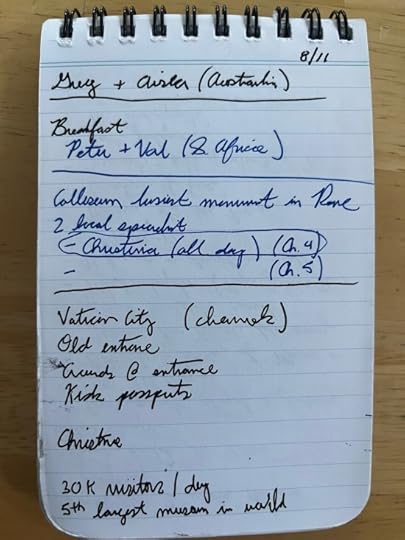 8/11
Greg + Aisla (Australia)
Breakfast
Peter + Val (S. Africa)
Colleseum busiest monument in Rome
2 local specialist
- Christina (all day) (Ch. 4)
- (Ch. 5)
Vatican City (channels)
Old entrance
Guards @ entrance
Kids passports
Christina
30K visitors / day
5th largest museum in world